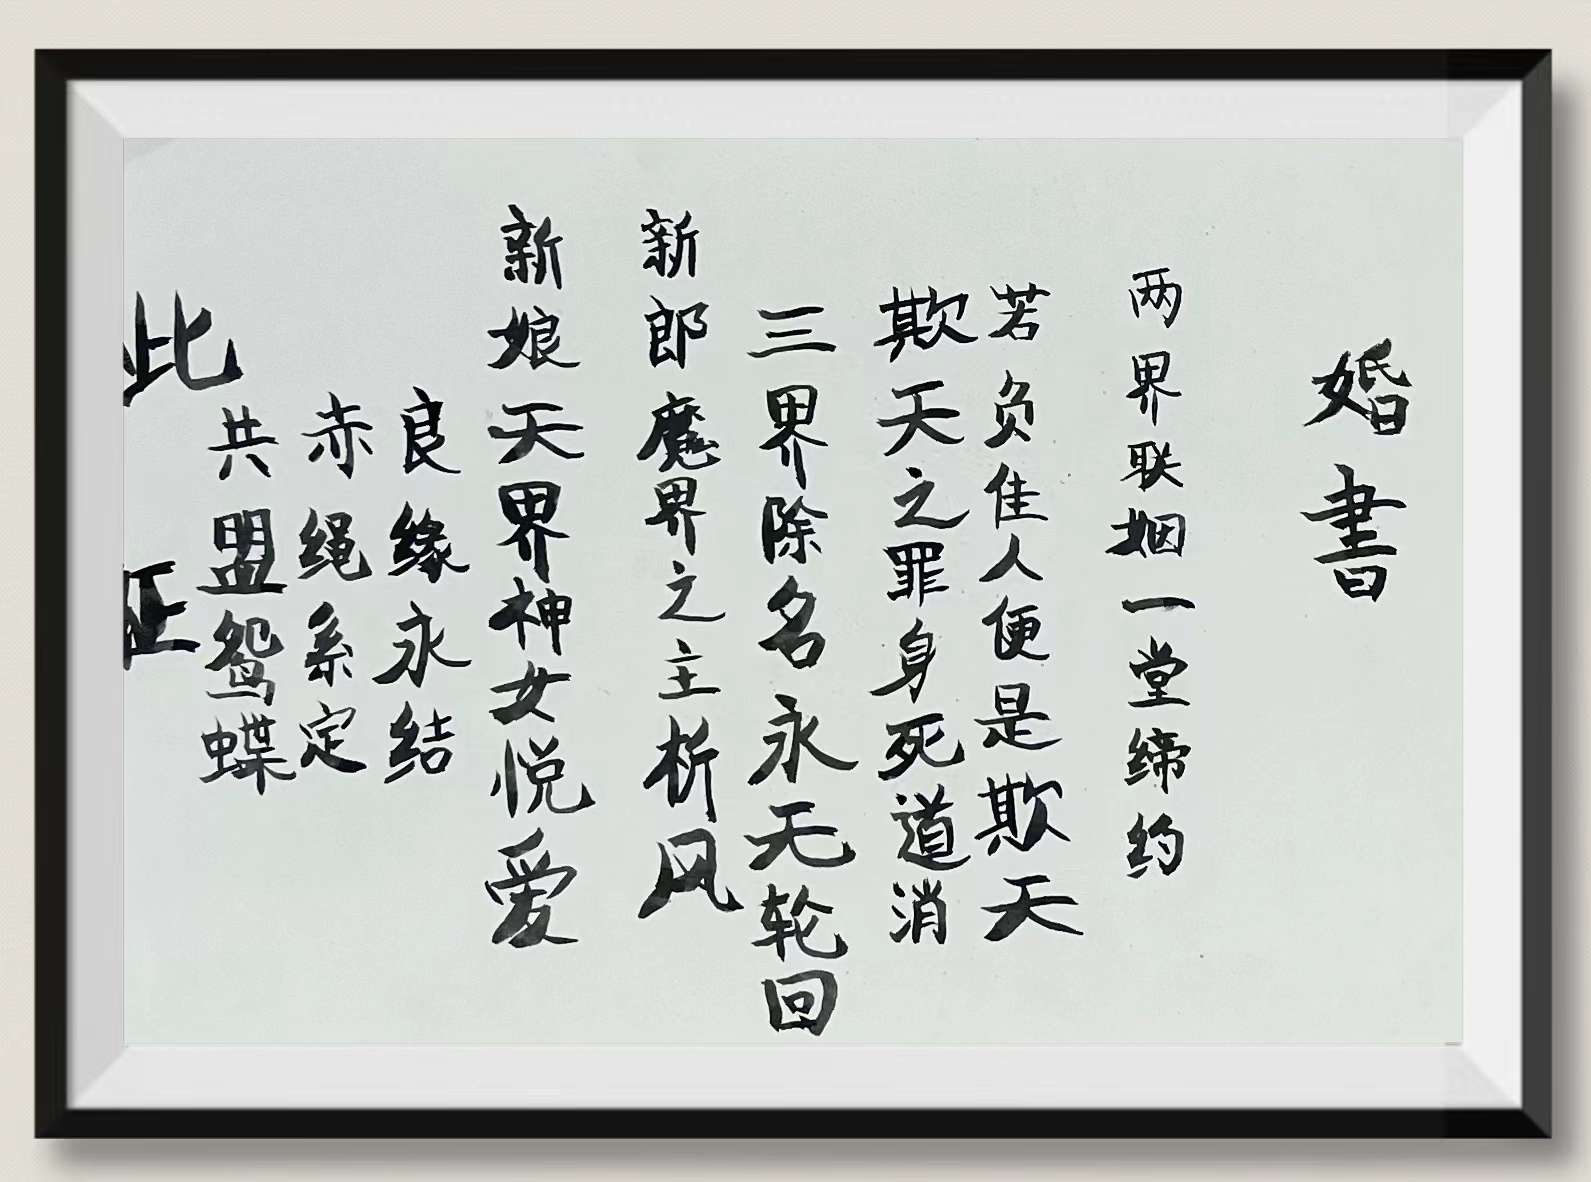 婚書
两界联姻一堂缔约
若负佳人便是欺天
欺天之罪身死道消
三界除名永无轮回
新郎魔界之主析风
新娘天界神女悦爱
良缘永结
赤绳系定
共盟鸳蝶
此证